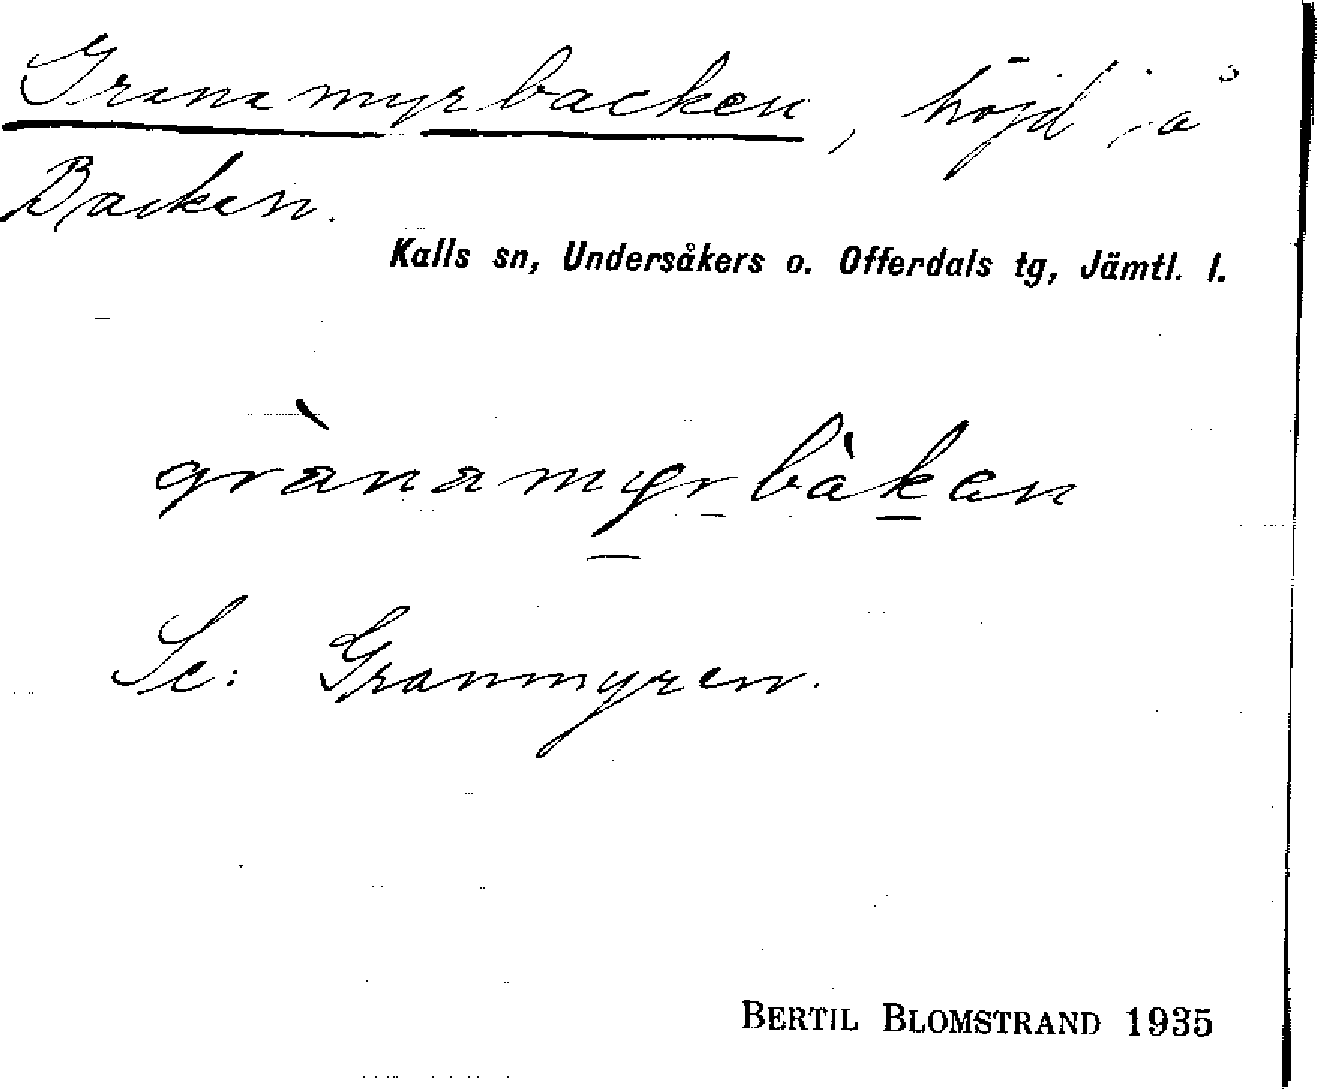 Granamyrbacken, höjd på
Backen.
Kalls sn, Undersåkers o. Offerdals tg, Jämtl. l.
grànamyrbàkan
Se: Granmyren.
BERTIL BLOMSTRAND 1935